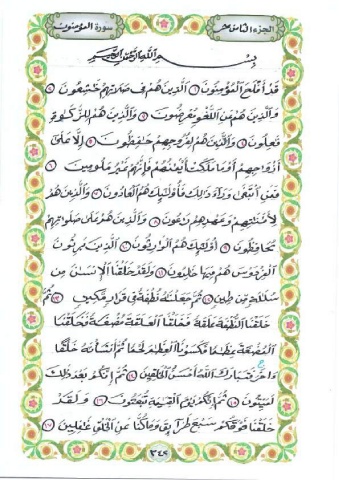 الجزء الثامن عشر
سورة المؤمنون
بسم الله الرحمن الرحيم
قد أفلح المؤمنون ١ الذين هم في صلاتهم خشعون ٢
والذين هم عن اللغو معرضون ٣ والذين هم للزكوة
فعلون ٤ والذين هم لفروجهم حفظون ٥ إلا على
أزواجهم أو ما ملكت أيمنهم فإنهم غير ملومين ٦
فمن ابتغى وراء ذلك فأولئك هم العادون ٧ والذين هم
لأمنتهم وعهدهم رعون ٨ والذين هم على صلواتهم
يحافظون ٩ أولئك هم الوارثون ١٠ الذين يرثون
الفردوس هم فيها خلدون ١١ ولقد خلقنا الإنسان من
سللة من طين ١٢ ثم جعلنه نطفة في قرار مكين ١٣ ثم
خلقنا النطفة علقة فخلقنا العلقة مضغة فخلقنا
المضغة عظما فكسونا العظم لحما ثم أنشأنه خلقا
ءاخر فتبارك الله أحسن الخلقين ١٤ ثم إنكم بعد ذلك
لميتون ١٥ ثم إنكم يوم القيمة تبعثون ١٦ ولقد
خلقنا فوقكم سبع طرآئق وما كنا عن الخلق غفلين ١٧
٣٤٢